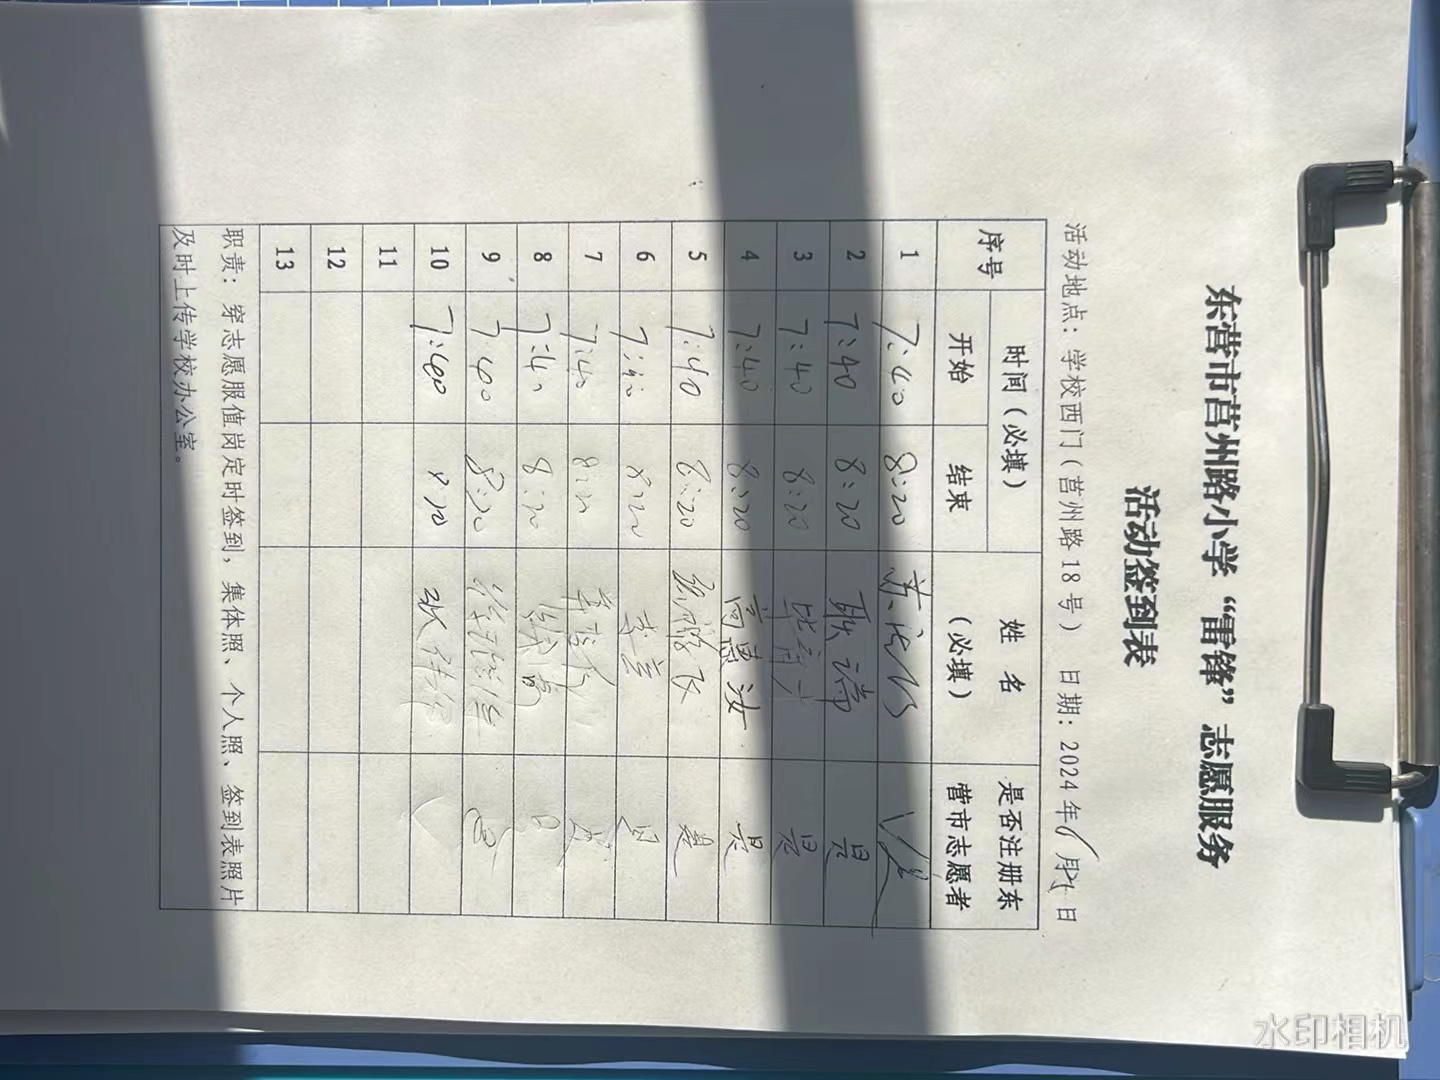 东营市莒州路小学“雷锋”志愿服务
活动签到表
活动地点：学校西门（莒州路18号） 日期：2024年 月 日
序号 时间（必填） 姓 名（必填） 是否注册东营市志愿者
开始 结束
1 7:40 8:20
2 7:40 8:20 耿 是
3 7:40 8:20 是
4 7:40 8:20 是
5 7:40 8:20 是
6 7:40 8:20 李 是
7 7:40 8:20
8 7:40 8:20
9 7:40 8:20 是
10 7:40 8:20 张
11
12
13
职责：穿志愿服值岗定时签到，集体照、个人照、签到表照片
及时上传学校办公室。
水印相机